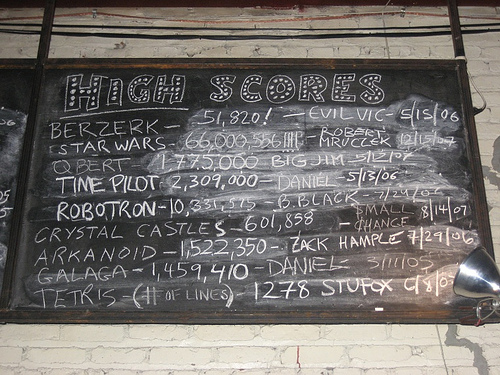 HIGH SCORES
BERZERK - 51,820! - EVIL VIC - 5/15/06
STAR WARS - 66,000,556 !!!! ROBERT MRUCZEK 12/15/07
QBERT - 1,775,000 BIG JIM - 5/12/07
TIME PILOT - 2,309,000 - DANIEL - 5/13/06
ROBOTRON - 10,331,575 - B.BLACK - 7/24/06
CRYSTAL CASTLES - 601,858 - SMALL CHANCE 8/14/07
ARKANOID - 1,522,350 - ZACK HAMPLE 7/29/06
GALAGA - 1,459,410 - DANIEL - 3/11/05
TETRIS - (# OF LINES) - 1278 STUFOX 6/8/0